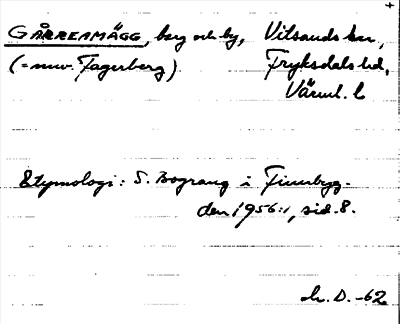 GÅRREAMÄGG, berg och by, Vitsands sn,
(= nuv. Fagerberg) Fryksdals hd,
Värml. l
Etymologi: S. Bograng i Finnbyg-
den 1956:1, sid. 8.
D. -62